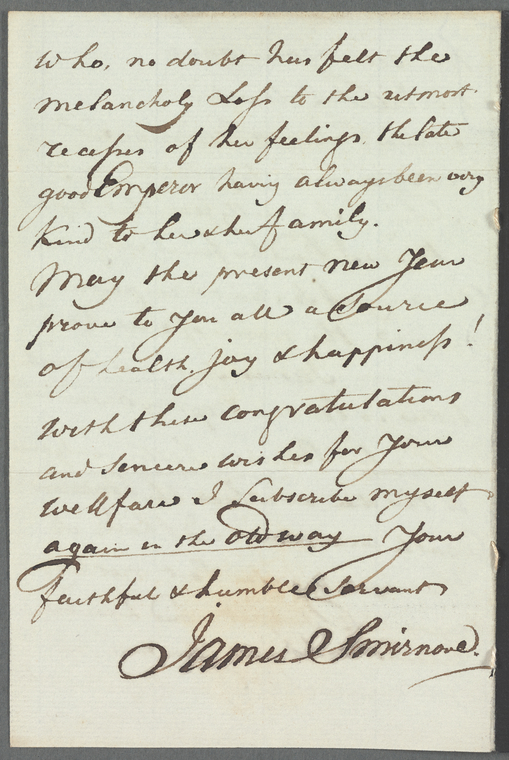 who, no doubt has felt the
melancholy Loss to the utmost
recesses of her feelings, the late
good Emperor having always been very
kind to her & her family.
May the present new Year
prove to you all a Source
of health, joy & happiness!
With these congratulations
and sencere wishes for your
wellfare I Subscribe myself
again in the old way Your
faithful & humble Servant
James Smirnove.